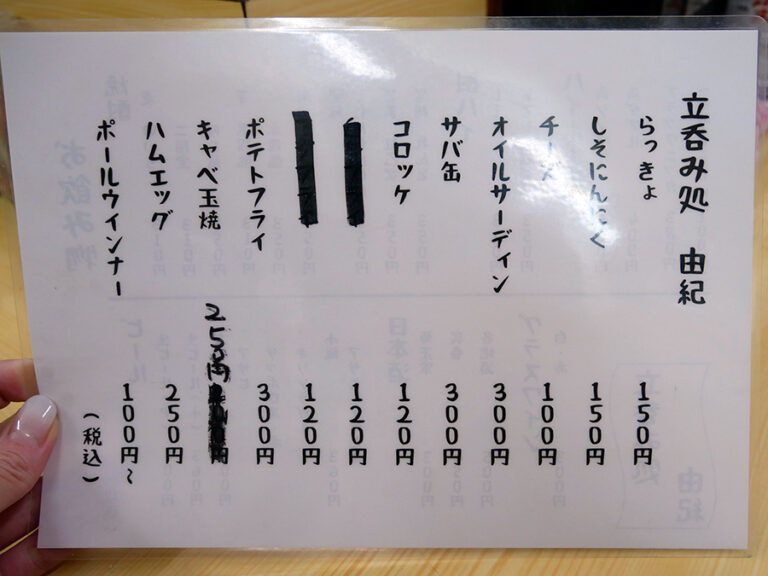 立呑み処 由紀
らっきょ 150円
しそにんにく 150円
チーズ 100円
オイルサーディン 300円
サバ缶 300円
コロッケ 120円
120円
120円
ポテトフライ 300円
キャベ玉焼 250円
ハムエッグ 250円
ポールウインナー 100円〜
(税込)
お飲み物
ビール
日本酒
グラスワイン
由紀